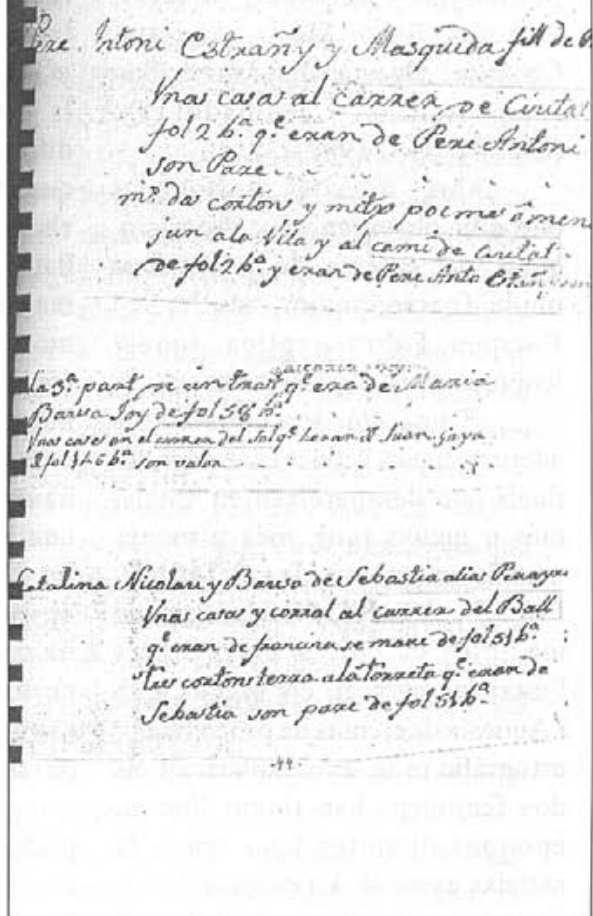 Pere Antoni Estrañy y Masquida fill de P
Vnas casas al carrer de Ciutat
fol 2 bª. qᵉ. eran de Pere Antoni
son Pare
mº. dos cortons y mitx poc mes ô men
jun a la Vila y al cami de Ciutat
de fol 2 bª. y eran de Pere Antº Estrañy son
la 3ª. part de un trast qᵉ. era de Maria
Barsa Joy de fol 58 bª.
Vnas cases en el carrer del Sol qᵉ. heran Juan Gaya.
fol 146 bª. son valor
Catalina Nicolau y Barsa de Sebastia alias
Vnas casas y corral al carrer del Ball
qᵉ. eran de francina se mare de fol 51 bª.
tres cortons terra a la torreta qᵉ. eran de
Sebastia son pare de fol 51 bª.
-44-